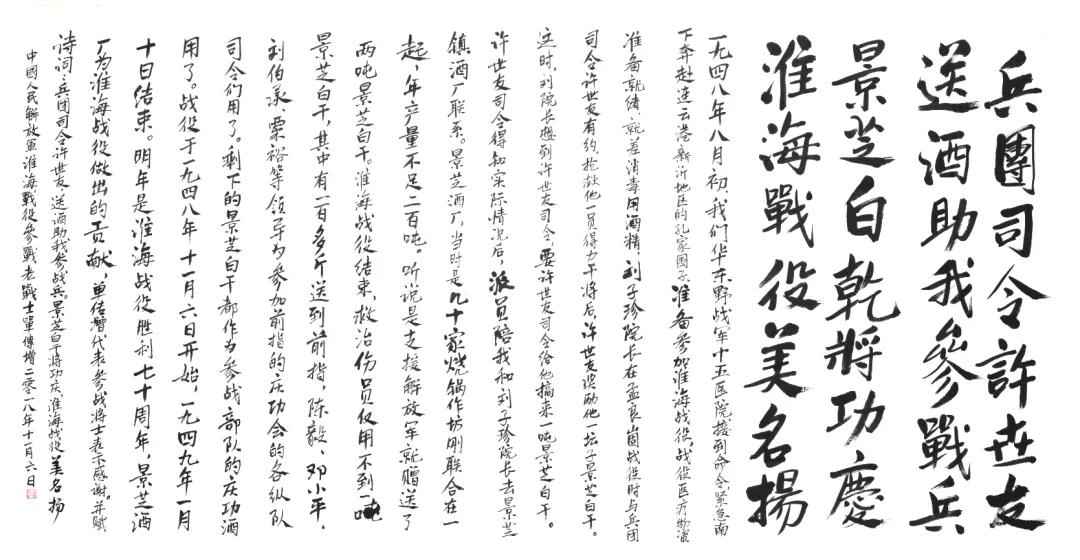 兵團司令許世友
送酒助我參戰兵
景芝白乾將功慶
淮海戰役美名揚
一九四八年八月初，我们华东野战军十五医院接到命令，紧急南
下奔赴连云港新沂地区的孔家围子，准备参加淮海战役。战役医疗物资
准备就绪，就差消毒用酒精，刘子珍院长在孟良崮战役时与兵团
司令许世友有约，抢救他一员得力干将后，许世友奖励他一坛子景芝白干。
这时，刘院长想到许世友司令，要许世友司令给他搞来一吨景芝白干。
许世友司令得知实际情况后，派员陪我和刘子珍院长去景芝
镇酒厂联系。景芝酒厂，当时是九十家烧锅作坊刚联合在一
起，年产量不足二百吨。听说是支援解放军就赠送了
两吨景芝白干。淮海战役结束，救治伤员仅用不到一吨
景芝白干，其中有一百多斤送到前指，陈毅、邓小平、
刘伯承、粟裕等领导为参加前指的庆功会的各纵队
司令们用了。剩下的景芝白干都作为参战部队的庆功酒
用了。战役于一九四八年十一月六日开始，一九四九年一月
十日结束。明年是淮海战役胜利七十周年，景芝酒
厂为淮海战役做出的贡献，单传增代表参战将士表示感谢。并赋
诗词：兵团司令许世友，送酒助我参战兵，景芝白干将功庆，淮海战役美名扬
中國人民解放軍淮海戰役參戰老戰士單傳增二零一八年十一月六日